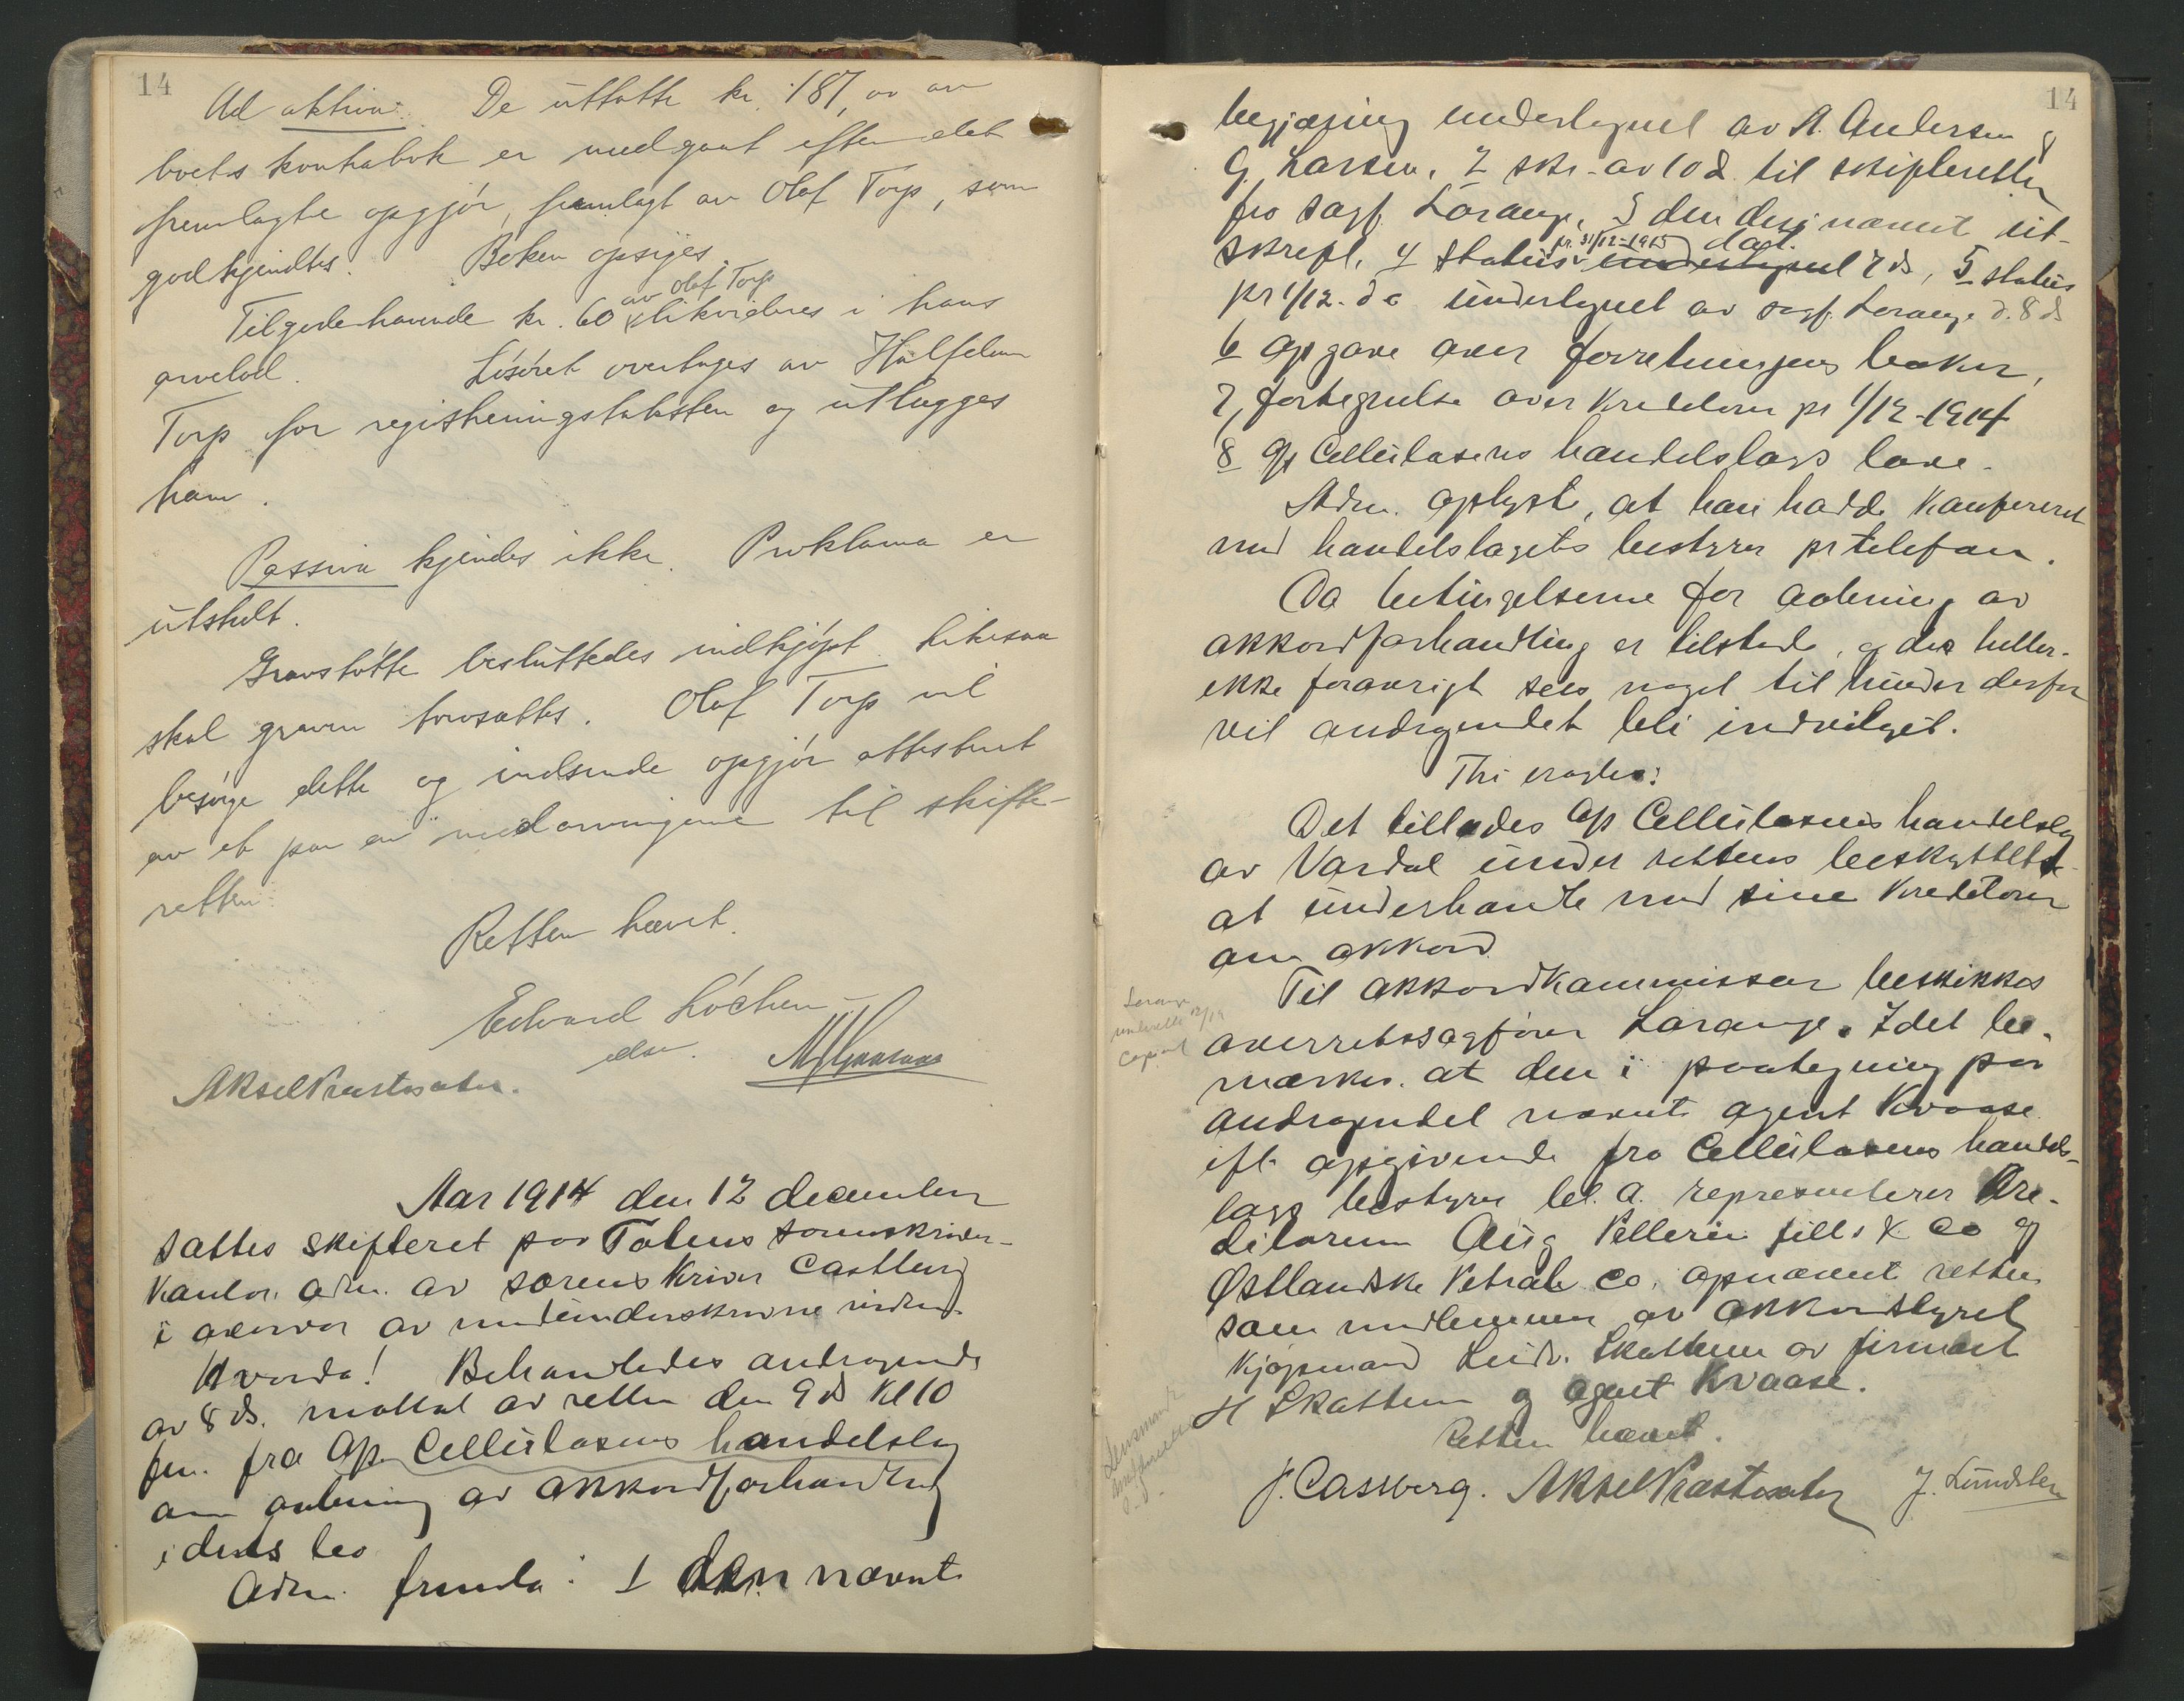 14
Ad aktiva: De uttatte kr. 187, oo av
boets kontrabok er medgaat efter det
fremlagte opgjör, fremlagt av Olof Torp, som
godkjendtes. Boken opsiges.
av Olof Torp
Tilgodehavende kr. 60 likvideres i hans
arvelod. Lösöret overtages av Halfdan
Torp for registreringstaksten og utlægges
ham.
Passiva kjendes ikke. Proklama er
utstedt.
Gravstötte besluttedes indkjöpt likesaa
skal graven forosattes. Olof Torp vil
besörge dette og indsende opgjör attestert
av et par av medarvingerne til skifte-
retten.
Retten hævet.
Edvard Löchen
edsv.
Aksel Præstesæter.
Aar 1914 den 12 december
sattes skifteret paa Totens sorenskriver-
kontor adm. av sorenskriver Castberg
i overvær av medunderskrevne vidner.
Hvorda! Behandledes andragende
av 8 ds. mottat av retten den 9 ds kl 10
fm. fra Op. Cellulosens handelslag
om aabning av akkordforhandling
i dets bo
Adm. fremla: 1 den nævnte
14
begjæring undertegnet av A. Andersen &
G. Larsen, 2 skr. av 10 d. til skifteretten
fra sagf. Lorange, 3 den deri nævnte ut-
pr. 31/12-1915 dat.
skrift, 4 status undertegnet 7 ds, 5 status
pr 1/12. d.a. undertegnet av sagf. Lorange d. 8 ds
6 opgave over forretningens bøker,
7, fortegnelse over kreditorer pr 1/12-1914
8 Op Cellulosens handelslags love.
Adm. oplyste, at han hadde konfereret
med handelslagets bestyrer pr telefon.
Da betingelserne for aabning av
akkordforhandling er tilstede, og der heller
ikke forøvrigt sees noget til hinder derfor
vil andragendet bli indvilget.
Thi eragtes:
Det tillades Op Cellulosens handelslag
av Vardal under rettens beskyttelse
at underhandle med sine kreditorer
om akkord.
Til akkordkommissær beskikkes
overretssagfører Lorange. Idet be-
mærkes. at den i paategning paa
andragendet nævnte agent Kvaase
ift. opgivende fra Cellulosens handels-
lags bestyrer bl. a. representerer kre-
ditorerne Aug Pellerin fills & Co og
Østlandske Petrole Co. opnævnt retten
som medlemmer av akkordstyret
kjøpmand Leidv. Skattum av firmaet
H Skattum og agent Kvaase.
Retten hævet.
J. Castberg. Aksel Præstesæter J. Lundsten
Lorange
underrettet 12/12